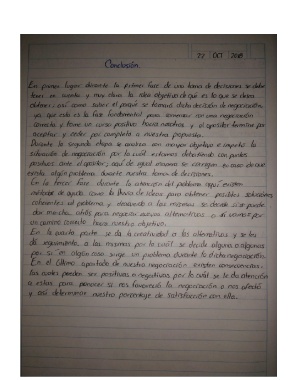 22 OCT 2018
Conclusión.
En primer lugar durante la primer fase de una toma de decisiones se debe
tener en cuenta y muy clara la idea objetivo de qué es lo que se desea
obtener; así como saber el porqué se tomará dicha decisión de negociación,
ya que esta es la fase fundamental para comenzar con una negociación
correcta y tome un curso positivo hacia nosotros y el opositor termine por
aceptar y ceder por completo a nuestra propuesta.
Durante la segunda etapa se analiza con mayor objetivo e impacto la
situación de negociación por la cuál estamos debatiendo con puntos
positivos ante el opositor; aquí de igual manera se corrigen en caso de que
exista algún problema durante nuestra toma de decisiones.
En la tercer fase, durante la obtención del problema aquí existen
métodos de ayuda como la lluvia de ideas para obtener posibles soluciones
coherentes al problema y después a las mismas se decide si se puede
dar nuestra, otras para negociar nuevas alternativas o di vamos por
un camino correcto hacia nuestro objetivo.
En la cuarta parte se da la continuidad a las alternativas y se les
da seguimiento a las mismas por lo cuál se decide alguna o algunas
por si en algún caso surge un problema durante la dicha negociación.
En el último apartado de nuestra negociación existen consecuencias
las cuales pueden ser positivas o negativas por lo cuál se le da atención
a estas para conocer si nos favoreció la negociación o nos afectó
y así determinar nuestro porcentaje de satisfacción con ella.